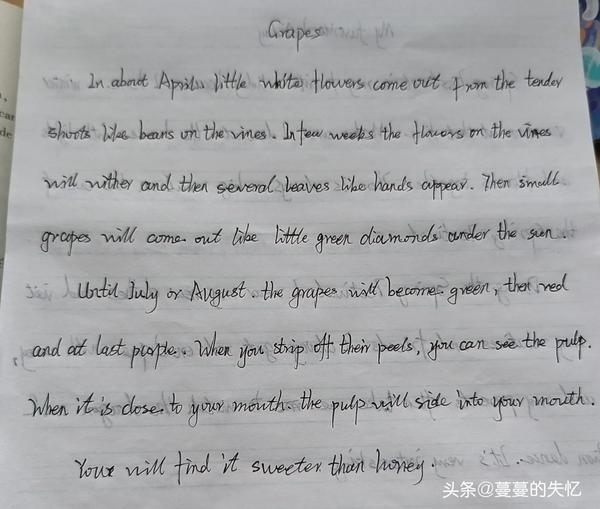 Grapes
In about April, little white flowers come out from the tender
shoots like beans on the vines. In few weeks the flowers on the vines
will wither and then several leaves like hands appear. Then small
grapes will come out like little green diamonds under the sun.
Until July or August. the grapes will become green, then red
and at last purple. When you strip off their peels, you can see the pulp.
When it is close to your mouth. the pulp will side into your mouth.
You will find it sweeter than honey.
头条@蔓蔓的失忆